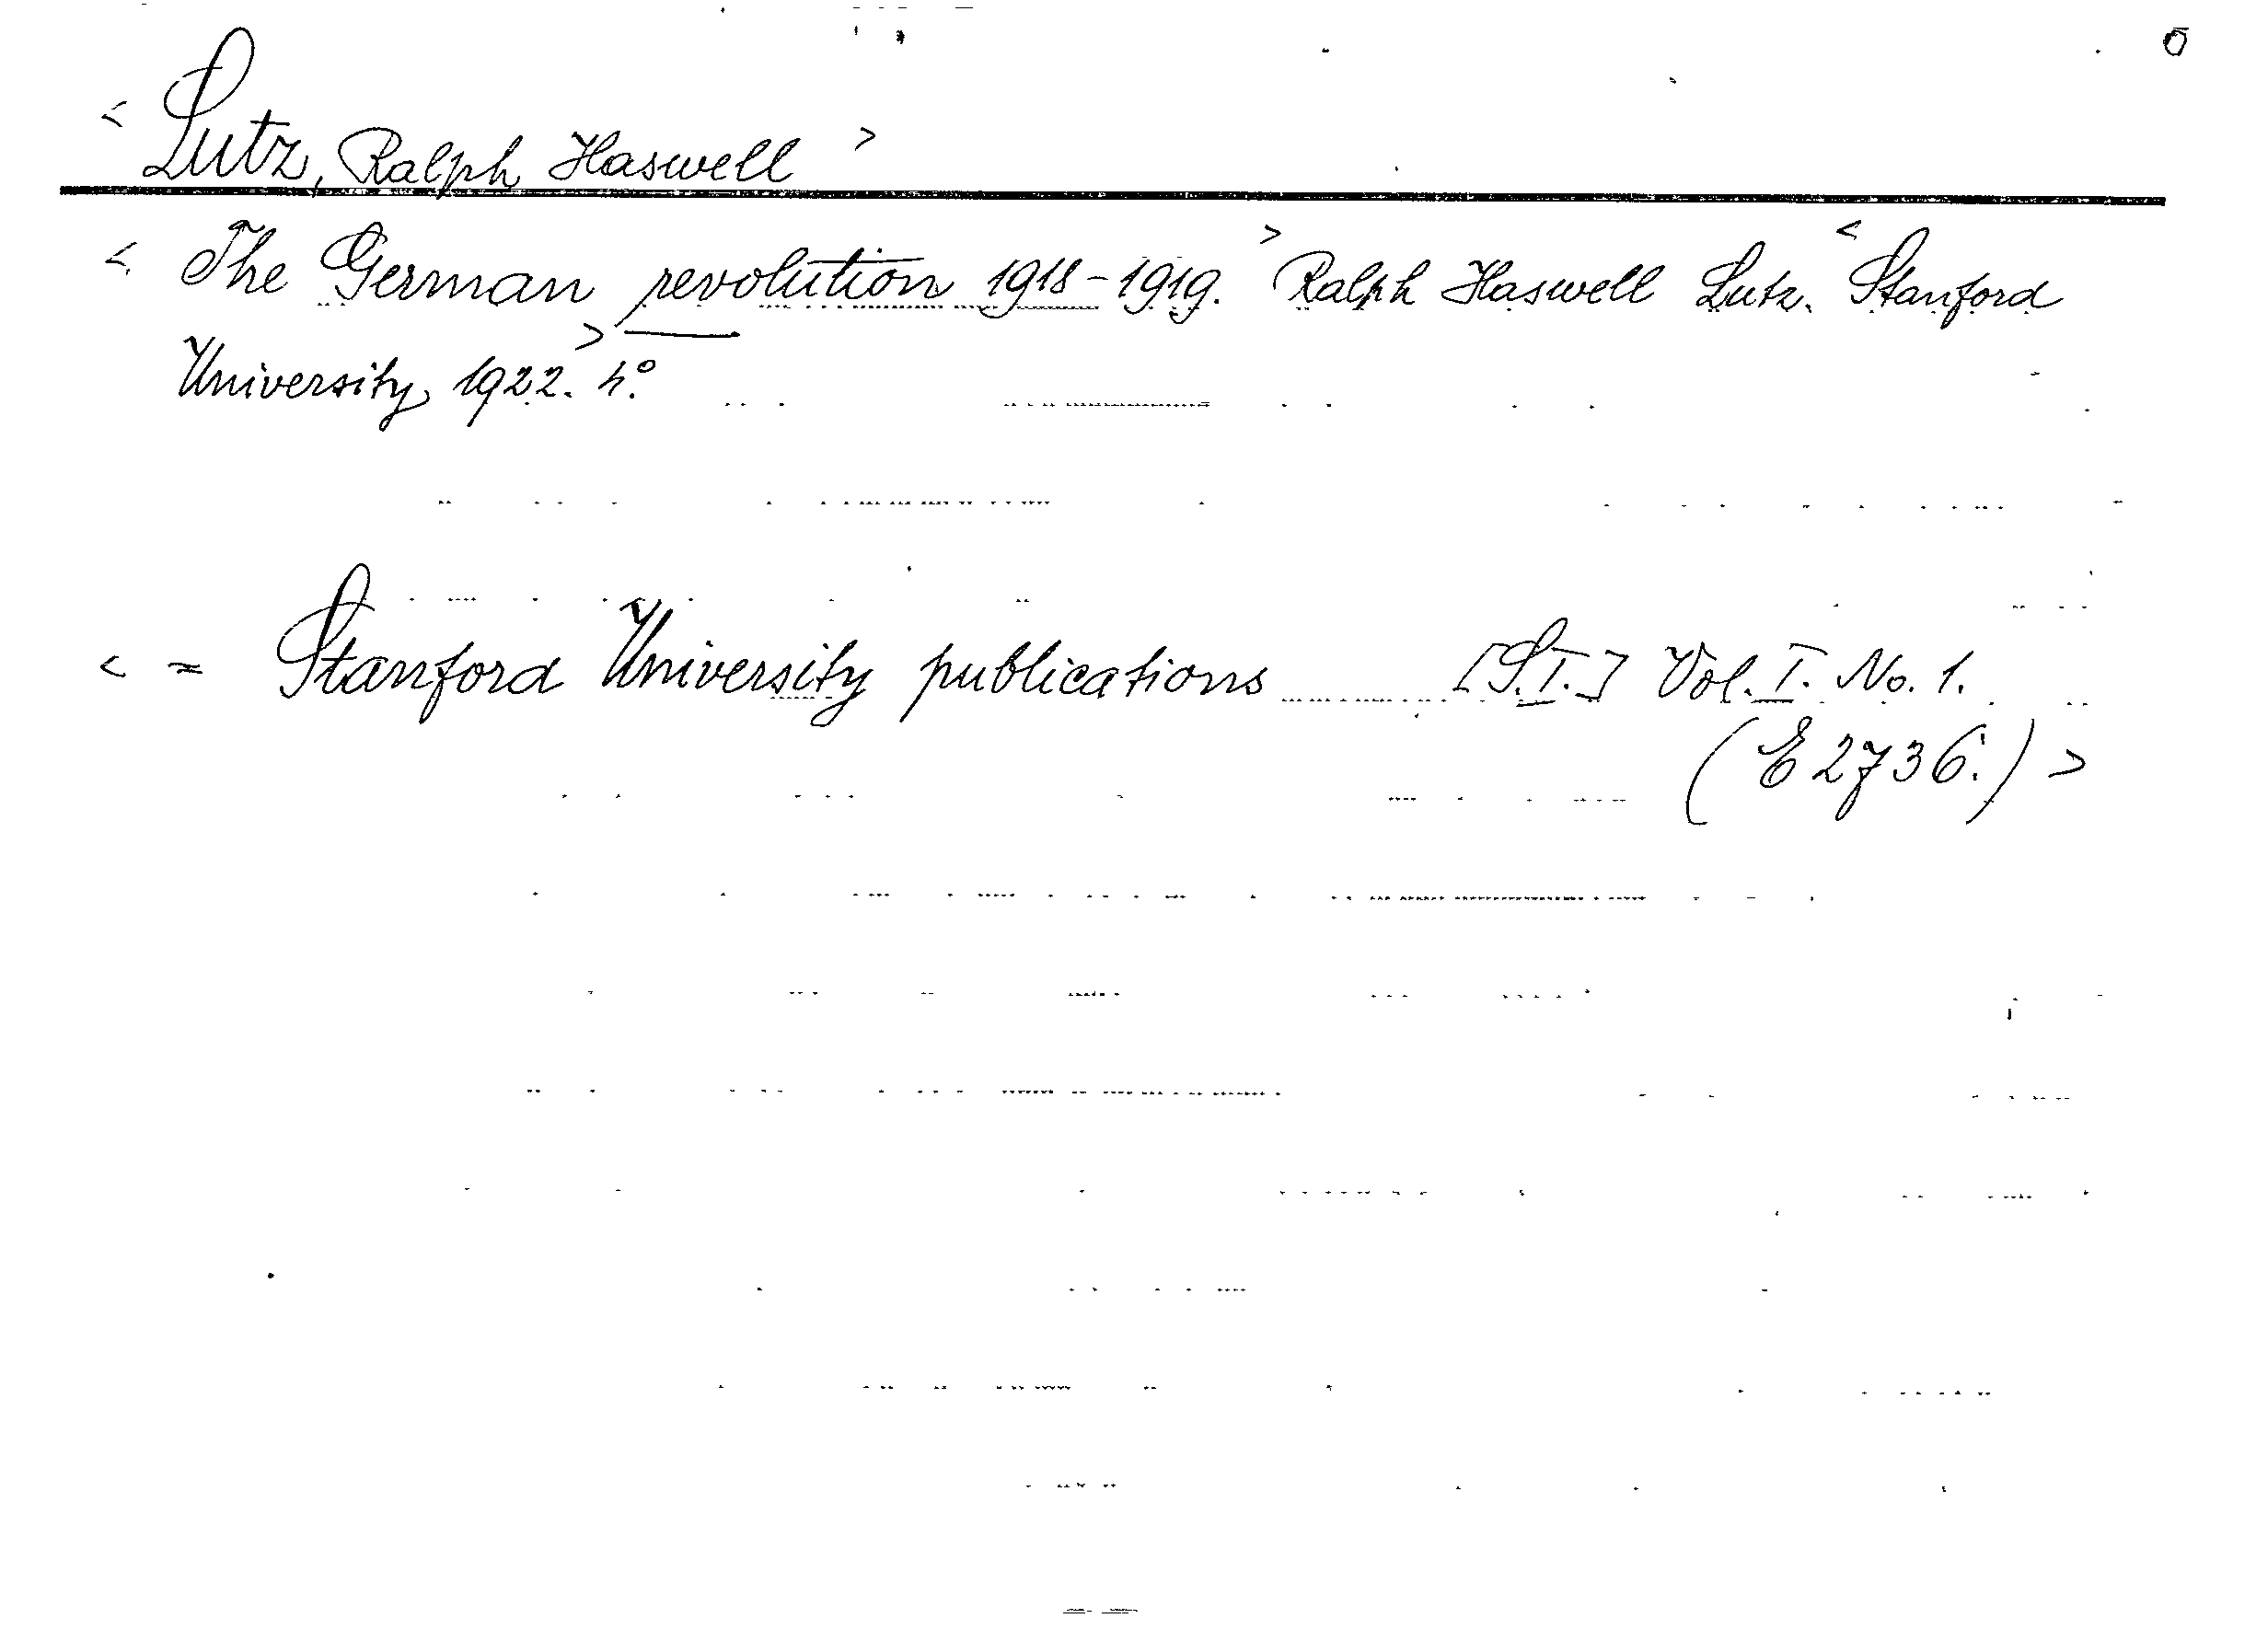 < Lutz, Ralph Haswell >
< The German revolution 1918-1919. > Ralph Haswell Lutz. < Stanford
University, 1922. > 4°.
< = Stanford University publications [S.I.] Vol. I. No. 1.
(E 2736.) >